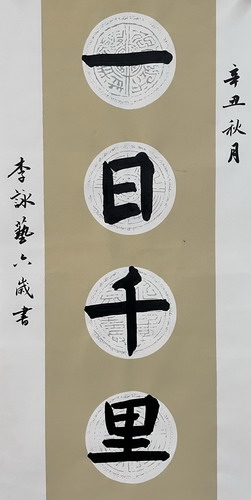 辛丑秋月
一日千里
李詠藝六歲書